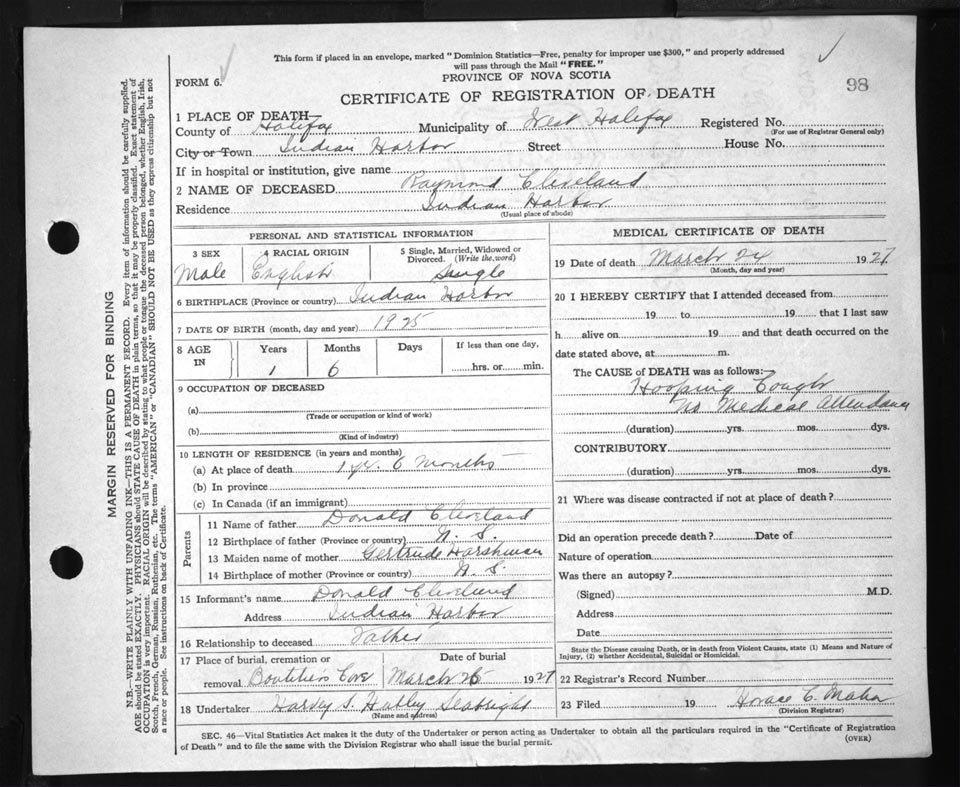 This form if placed in an envelope, marked "Dominion Statistics—Free, penalty for improper use $300," and properly addressed
will pass through the Mail "FREE."
FORM 6.
PROVINCE OF NOVA SCOTIA
98
CERTIFICATE OF REGISTRATION OF DEATH
1 PLACE OF DEATH
County of Halifax Municipality of West Halifax Registered No.
(For use of Registrar General only)
City or Town Indian Harbor Street House No.
If in hospital or institution, give name
2 NAME OF DECEASED Raymond Cleveland
Residence Indian Harbor
(Usual place of abode)
PERSONAL AND STATISTICAL INFORMATION
3 SEX Male
4 RACIAL ORIGIN English
5 Single, Married, Widowed or Divorced. (Write the word) Single
6 BIRTHPLACE (Province or country) Indian Harbor
7 DATE OF BIRTH (month, day and year) 1925
8 AGE IN
Years Months Days If less than one day,
1 6 hrs. or min.
9 OCCUPATION OF DECEASED
(a)
(Trade or occupation or kind of work)
(b)
(Kind of industry)
10 LENGTH OF RESIDENCE (in years and months)
(a) At place of death 1 yr. 6 months
(b) In province
(c) In Canada (if an immigrant)
Parents
11 Name of father Donald Cleveland
12 Birthplace of father (Province or country) N. S.
13 Maiden name of mother Gertrude Harshman
14 Birthplace of mother (Province or country) N. S.
15 Informant's name Donald Cleveland
Address Indian Harbor
16 Relationship to deceased Father
17 Place of burial, cremation or removal Boutilier's Cove
Date of burial March 26 1927
18 Undertaker Harvey S. Hubley Seabright
(Name and address)
MEDICAL CERTIFICATE OF DEATH
19 Date of death March 24 1927
(Month, day and year)
20 I HEREBY CERTIFY that I attended deceased from
19 to 19 that I last saw
h alive on 19 and that death occurred on
date stated above, at m.
The CAUSE of DEATH was as follows:
Hooping Cough
No Medical Attendance
(duration) yrs. mos. dys.
CONTRIBUTORY
(duration) yrs. mos. dys.
21 Where was disease contracted if not at place of death?
Did an operation precede death? Date of
Nature of operation
Was there an autopsy?
(Signed) M.D.
Address
Date
State the Disease causing Death, or in death from Violent Causes, state (1) Means and Nature of
Injury, (2) whether Accidental, Suicidal or Homicidal.
22 Registrar's Record Number
23 Filed 19 Horace C.
(Division Registrar)
SEC. 46—Vital Statistics Act makes it the duty of the Undertaker or person acting as Undertaker to obtain all the particulars required in the "Certificate of Registration
of Death" and to file the same with the Division Registrar who shall issue the burial permit.
(OVER)
MARGIN RESERVED FOR BINDING
N.B.—WRITE PLAINLY WITH UNFADING INK—THIS IS A PERMANENT RECORD. Every item of information should be carefully supplied.
AGE should be stated EXACTLY. PHYSICIANS should STATE CAUSE OF DEATH in plain terms, so that it may be properly classified. Exact statement of
OCCUPATION is very important. RACIAL ORIGIN will be described by stating to what people or tongue the deceased person belonged, whether English, Irish,
Scotch, French, German, Russian, Ruthenian, etc. The terms "AMERICAN" or "CANADIAN" SHOULD NOT BE USED as they express citizenship but not
a race or people. See instructions on back of Certificate.